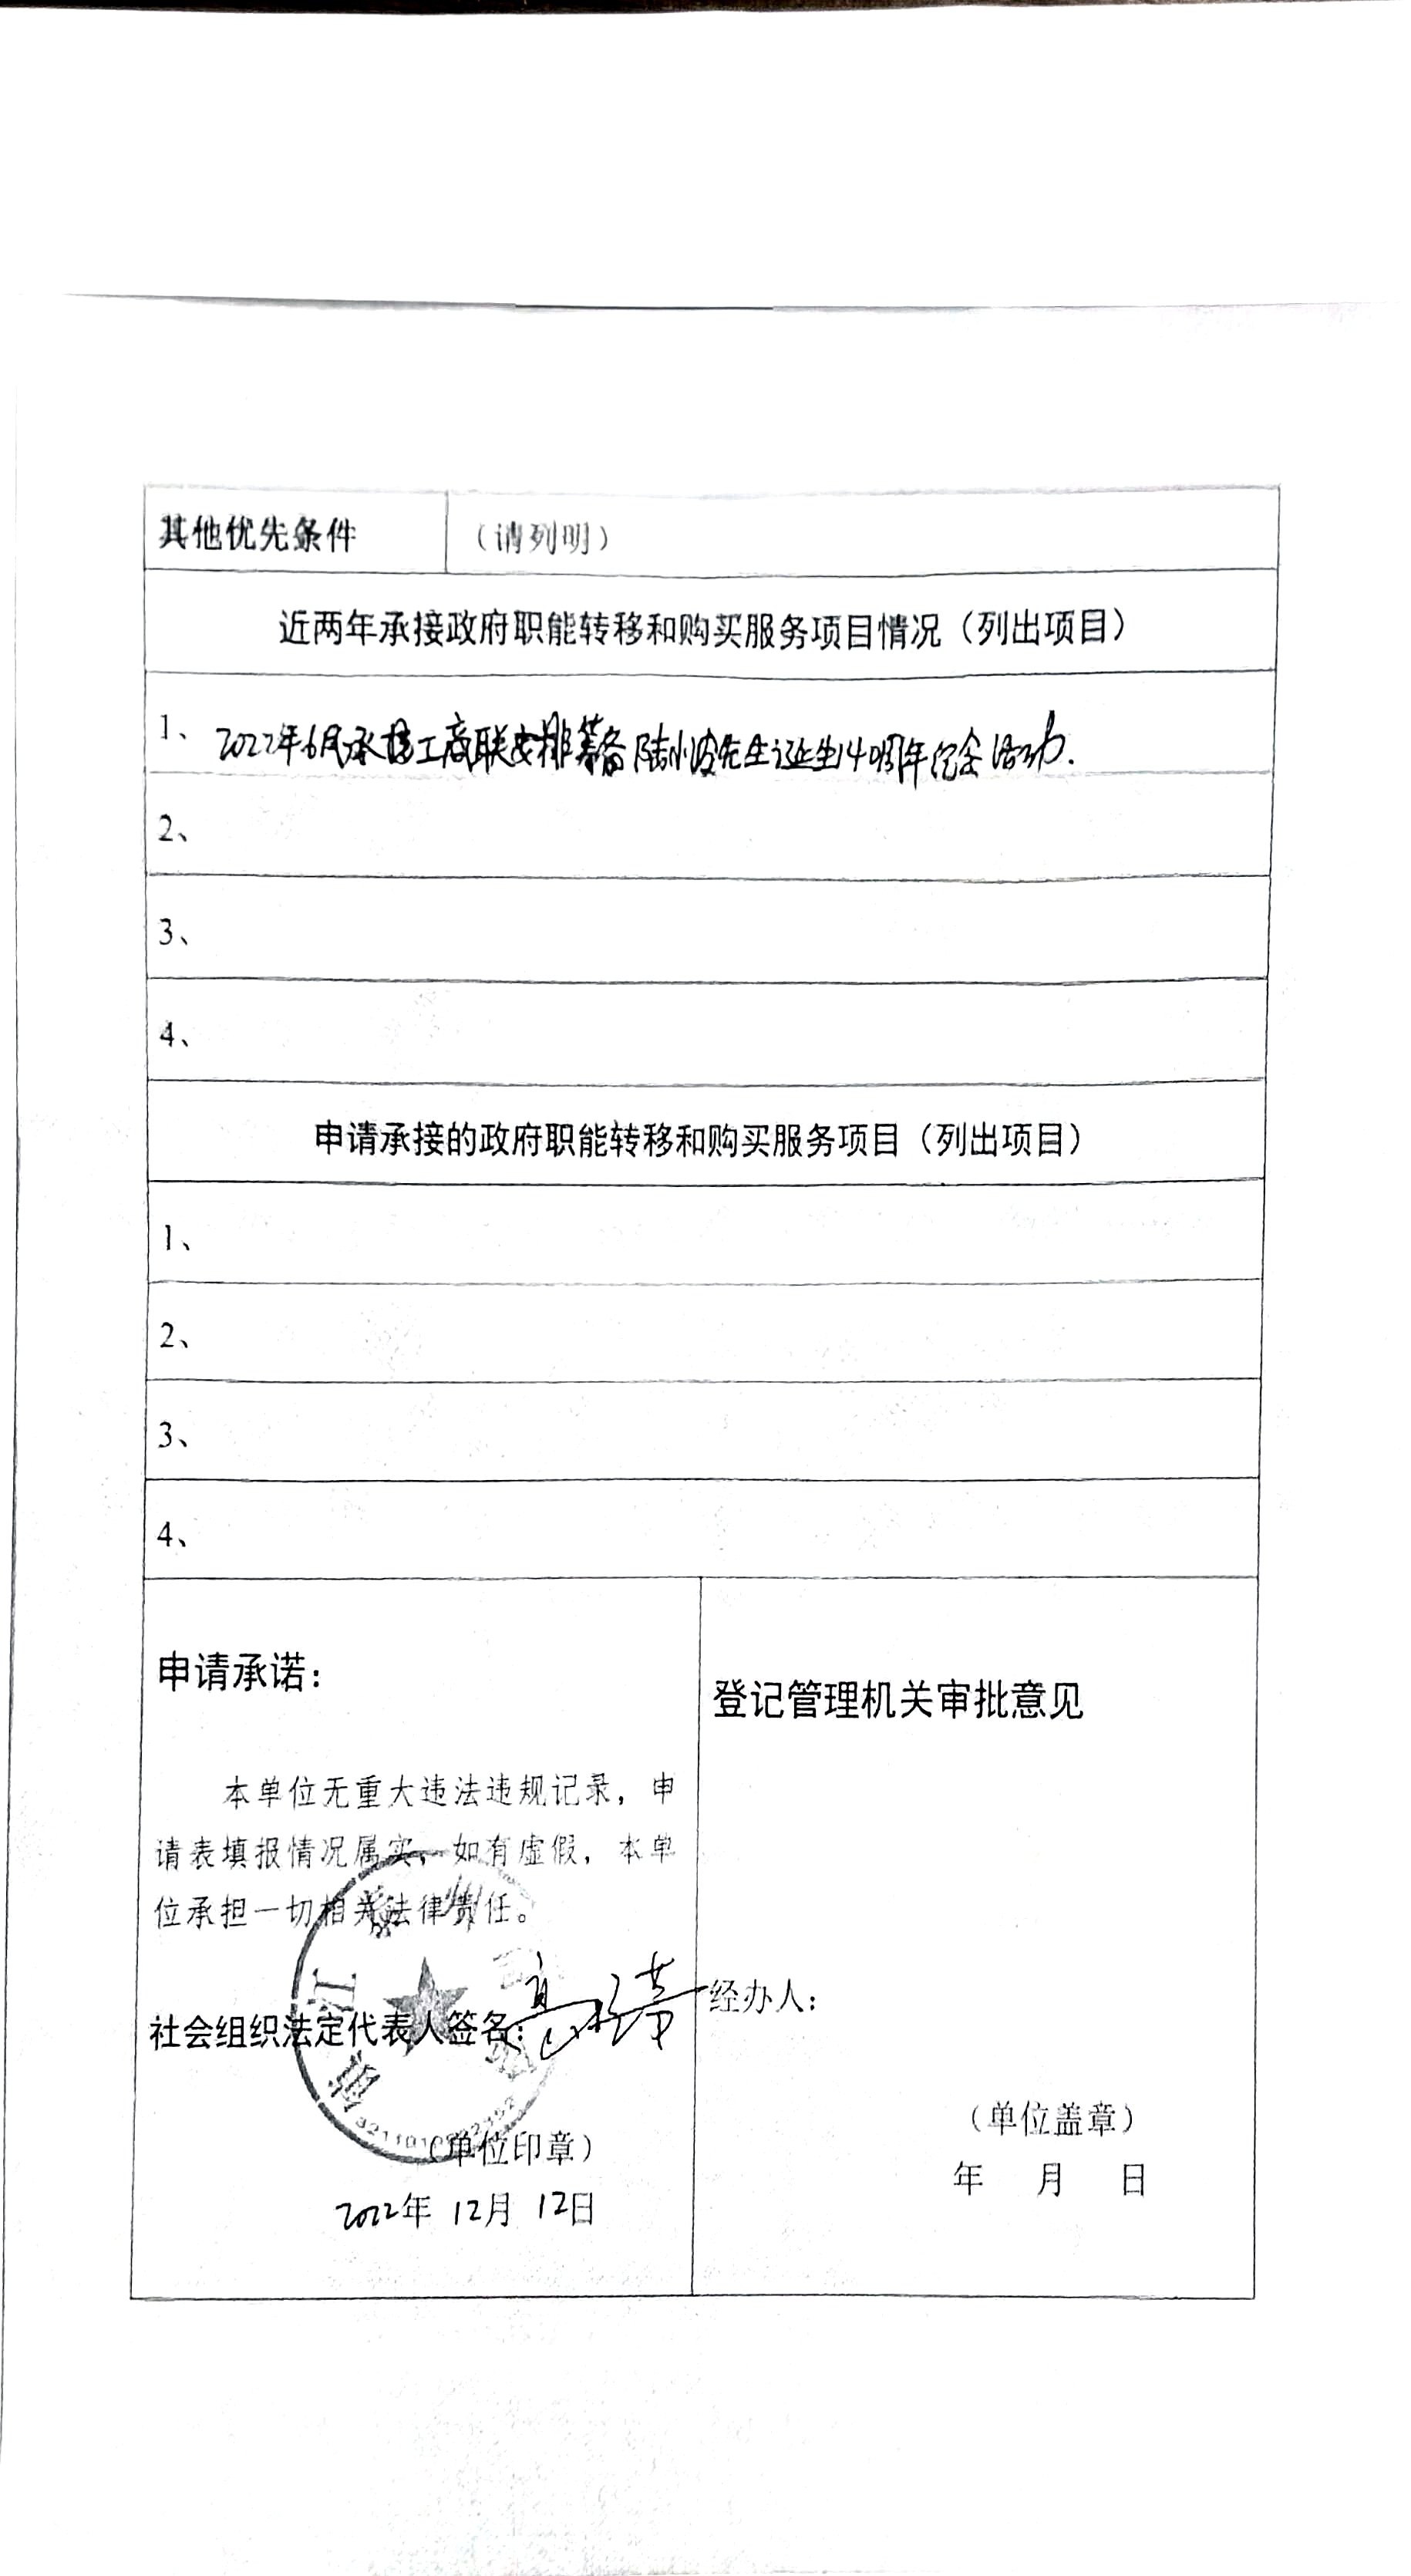 其他优先条件 （请列明）
近两年承接政府职能转移和购买服务项目情况（列出项目）
1、2022年6月承接工商联安排筹备陆小波先生诞生140周年纪念活动.
2、
3、
4、
申请承接的政府职能转移和购买服务项目（列出项目）
1、
2、
3、
4、
申请承诺：
本单位无重大违法违规记录，申
请表填报情况属实，如有虚假，本单
位承担一切相关法律责任。
社会组织法定代表人签名：
（单位印章）
2022年 12月 12日
登记管理机关审批意见
经办人：
（单位盖章）
年 月 日